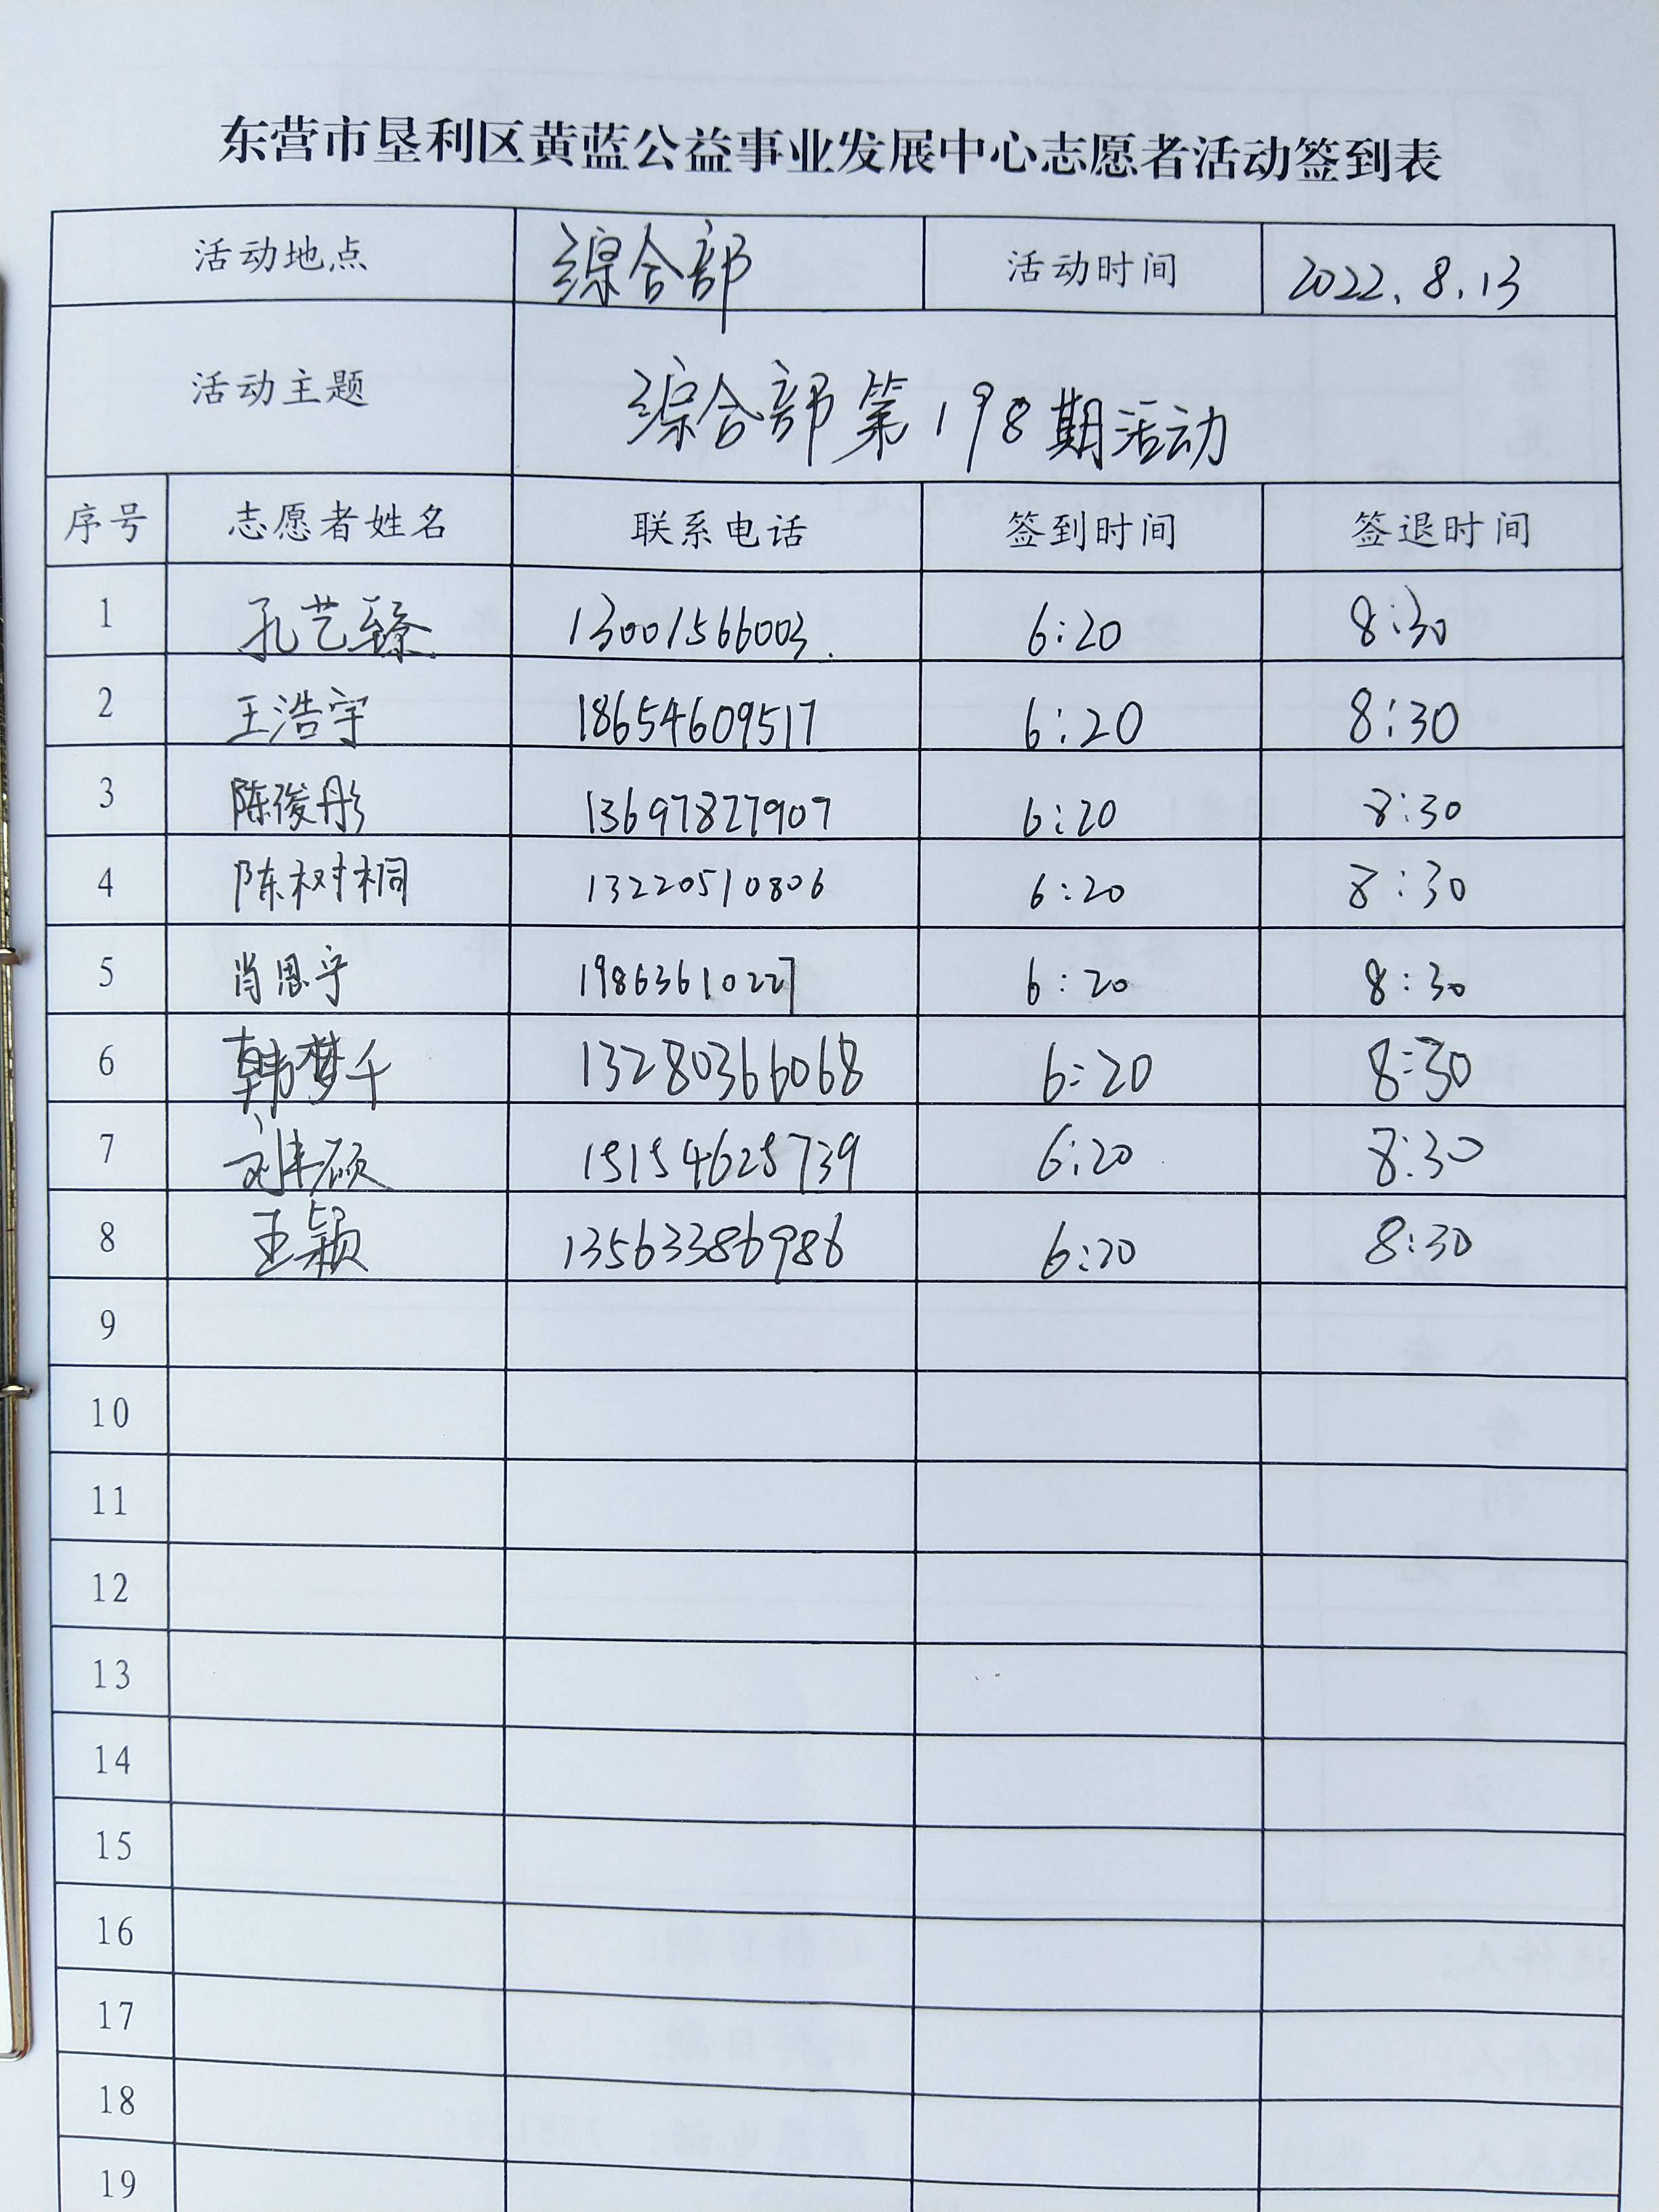 东营市垦利区黄蓝公益事业发展中心志愿者活动签到表
活动地点 综合部 活动时间 2022.8.13
活动主题 综合部第198期活动
序号 志愿者姓名 联系电话 签到时间 签退时间
1 孔艺臻 13001566003. 6:20 8:30
2 王浩宇 18654609517 6:20 8:30
3 陈俊彤 13697827907 6:20 8:30
4 陈树桐 13220510806 6:20 8:30
5 肖思宁 19863610227 6:20 8:30
6 韩梦千 13280366068 6:20 8:30
7 刘丰硕 15154625739 6:20 8:30
8 王颖 13563386986 6:20 8:30
9
10
11
12
13
14
15
16
17
18
19